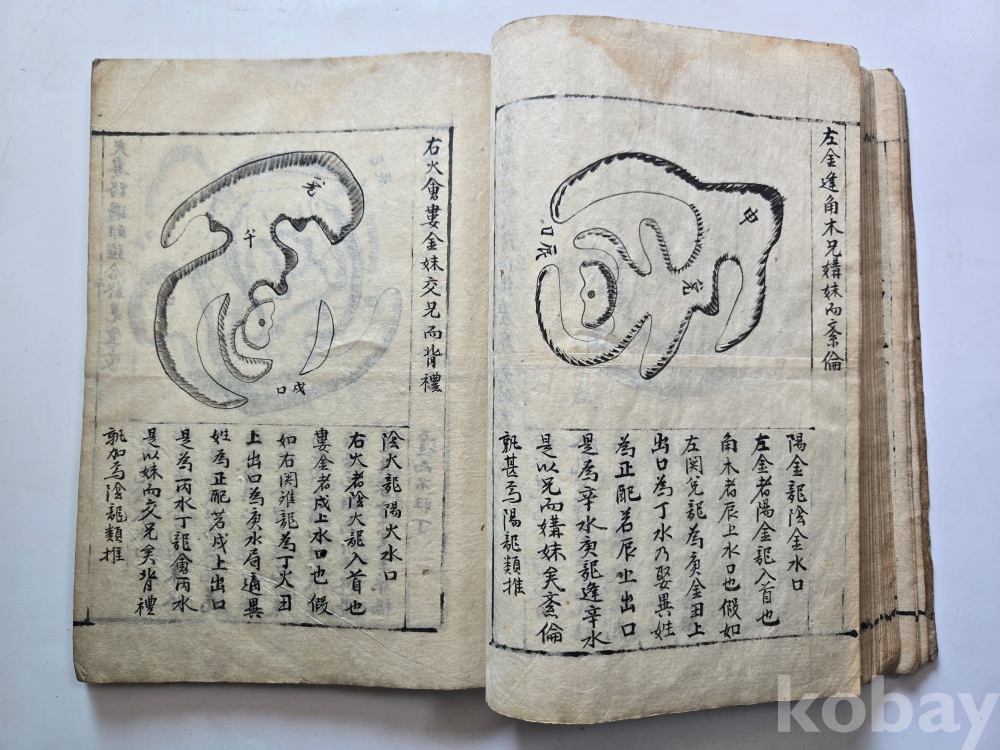 左金逢角木兄媾妹而紊倫
申
兊
辰
口
陽金龍陰金水口
左金者陽金龍入首也
角木者辰上水口也假如
左関兊龍為庚金丑上
出口為丁水乃娶異姓
為正配若辰上出口
是為辛水庚龍逢辛水
是以兄而媾妹矣紊倫
孰甚焉陽龍類推
右火會婁金妹交兄而背禮
兊
午
戌
口
陰火龍陽火水口
右火者陰火龍入首也
婁金者戌上水口也假
如右関離龍為丁火丑
上出口為庚水局通異
姓為正配若戌上出口
是為丙水丁龍會丙水
是以妹而交兄矣背禮
孰加焉陰龍類推
kobay